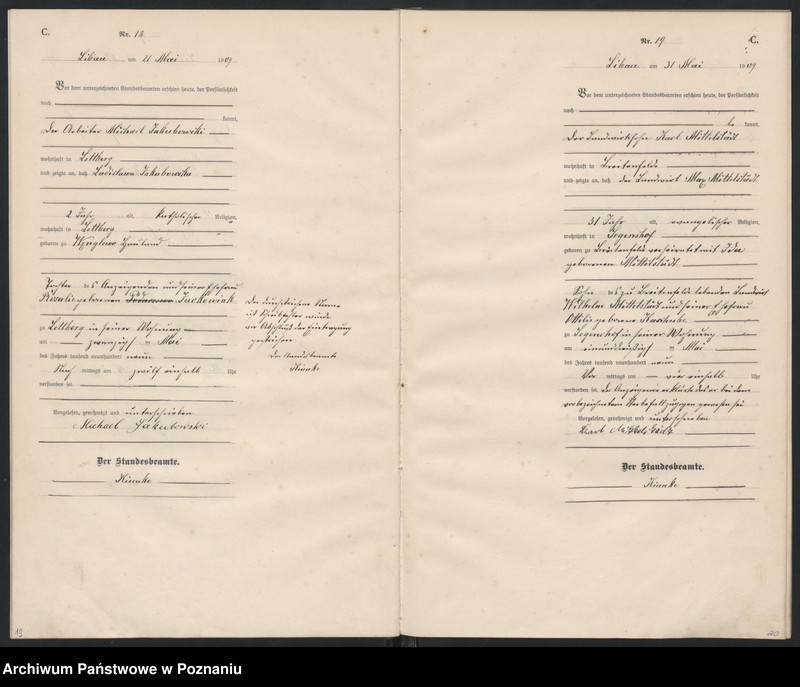 C.
Nr. 18
Libau am 21 Mai 1909
Vor dem unterzeichneten Standesbeamten erschien heute, der Persönlichkeit
nach
kannt,
Der Arbeiter Michael Jakubowski
wohnhaft in Lettberg
und zeigte an, daß Ladislawa Jakubowska
2 Jahr alt, katholischer Religion,
wohnhaft in Lettberg
geboren zu Hauland
Tochter des Anzeigenden und seiner Ehefrau
Rosalie geborenen
zu Lettberg in seiner Wohnung
am zwanzigsten Mai
des Jahres tausend neunhundert neun
Nachmittags um zwölf einhalb Uhr
verstorben sei.
Vorgelesen, genehmigt und unterschrieben
Michael Jakubowski
Der Standesbeamte.
Der durchstrichene Name
ist Schreibfehler wurde
vor Abschluß der Eintragung
gestrichen
Der Standesbeamte
19
Nr. 19
C.
Libau am 31 Mai 1909
Vor dem unterzeichneten Standesbeamten erschien heute, der Persönlichkeit
nach
be kannt,
der Landwirtssohn Karl Mittelstädt
wohnhaft in Breitenfelde
und zeigte an, daß der Landwirt Max Mittelstädt
31 Jahr alt, evangelischer Religion,
wohnhaft in
geboren zu Breitenfelde verheiratet mit Ida
geborenen Mittelstädt
Sohn des zu Breitenfelde lebenden Landwirt
Wilhelm Mittelstädt und seiner Ehefrau
Ottilie geborene
zu in seiner Wohnung
am einunddreißigsten Mai
des Jahres tausend neunhundert neun
Vormittags um vier einhalb Uhr
verstorben sei. Der Anzeigende erklärte daß er bei dem
vorbezeichneten Sterbefall zugegen gewesen sei
Vorgelesen, genehmigt und unterschrieben
Karl Mittelstädt
Der Standesbeamte.
20
Archiwum Państwowe w Poznaniu